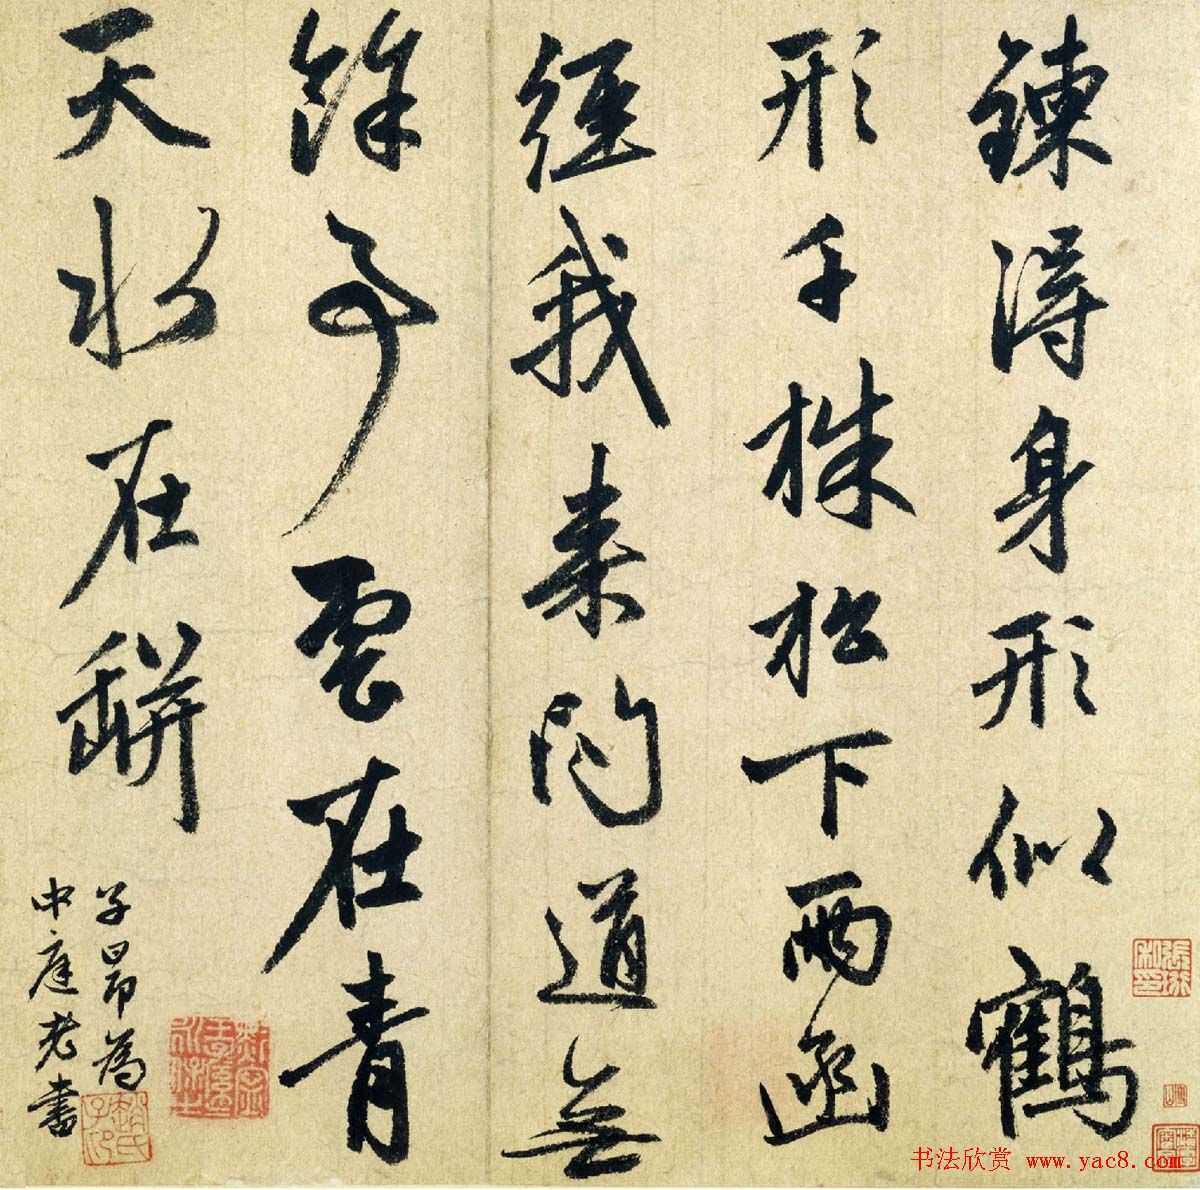 鍊得身形似鶴
形千株松下兩函
經我來問道無
餘事雲在青
天水在缾
子昂為
中庭老書
趙氏子昂
书法欣赏 www.yac8.com